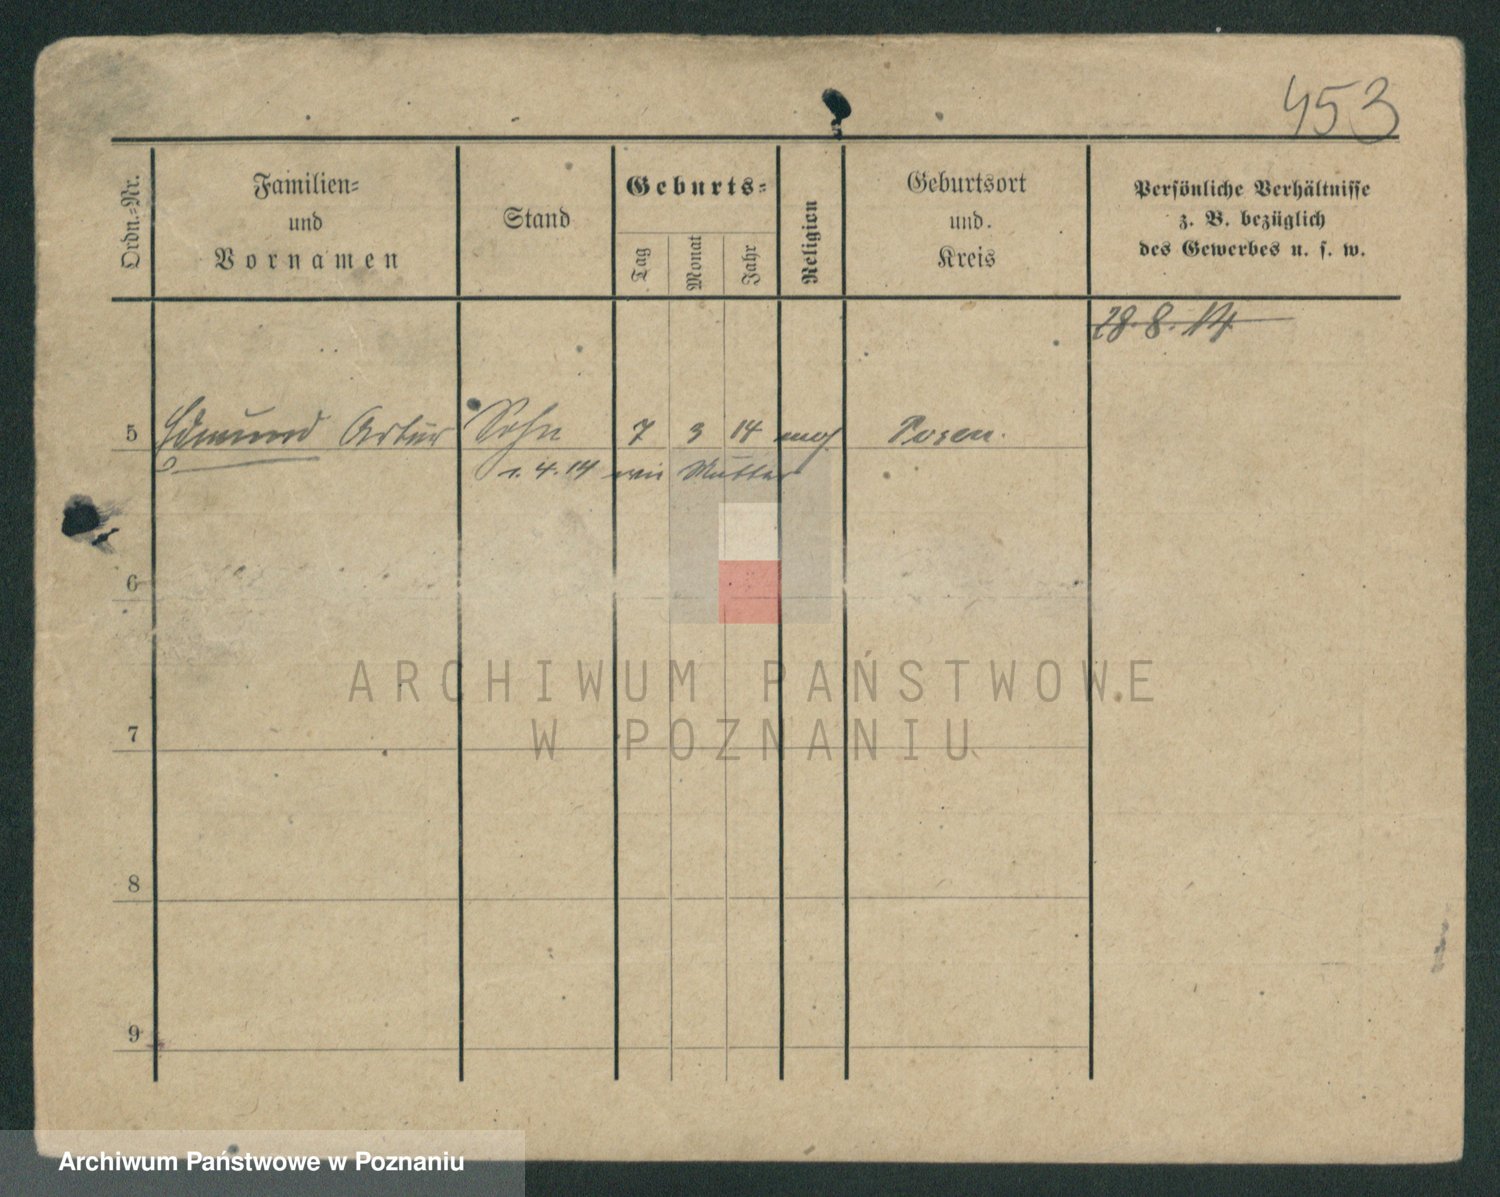 453
Ordn.=Nr.
Familien=
und
Vornamen
Stand
Geburts=
Tag
Monat
Jahr
Religion
Geburtsort
und.
Kreis
Persönliche Verhältnisse
z. B. bezüglich
des Gewerbes u. s. w.
28.8.14
5 Edmund Artur Sohn 7 3 14 Posen.
1.4.14 wie Mutter
6
ARCHIWUM PAŃSTWOWE
7
W POZNANIU
8
9
Archiwum Państwowe w Poznaniu